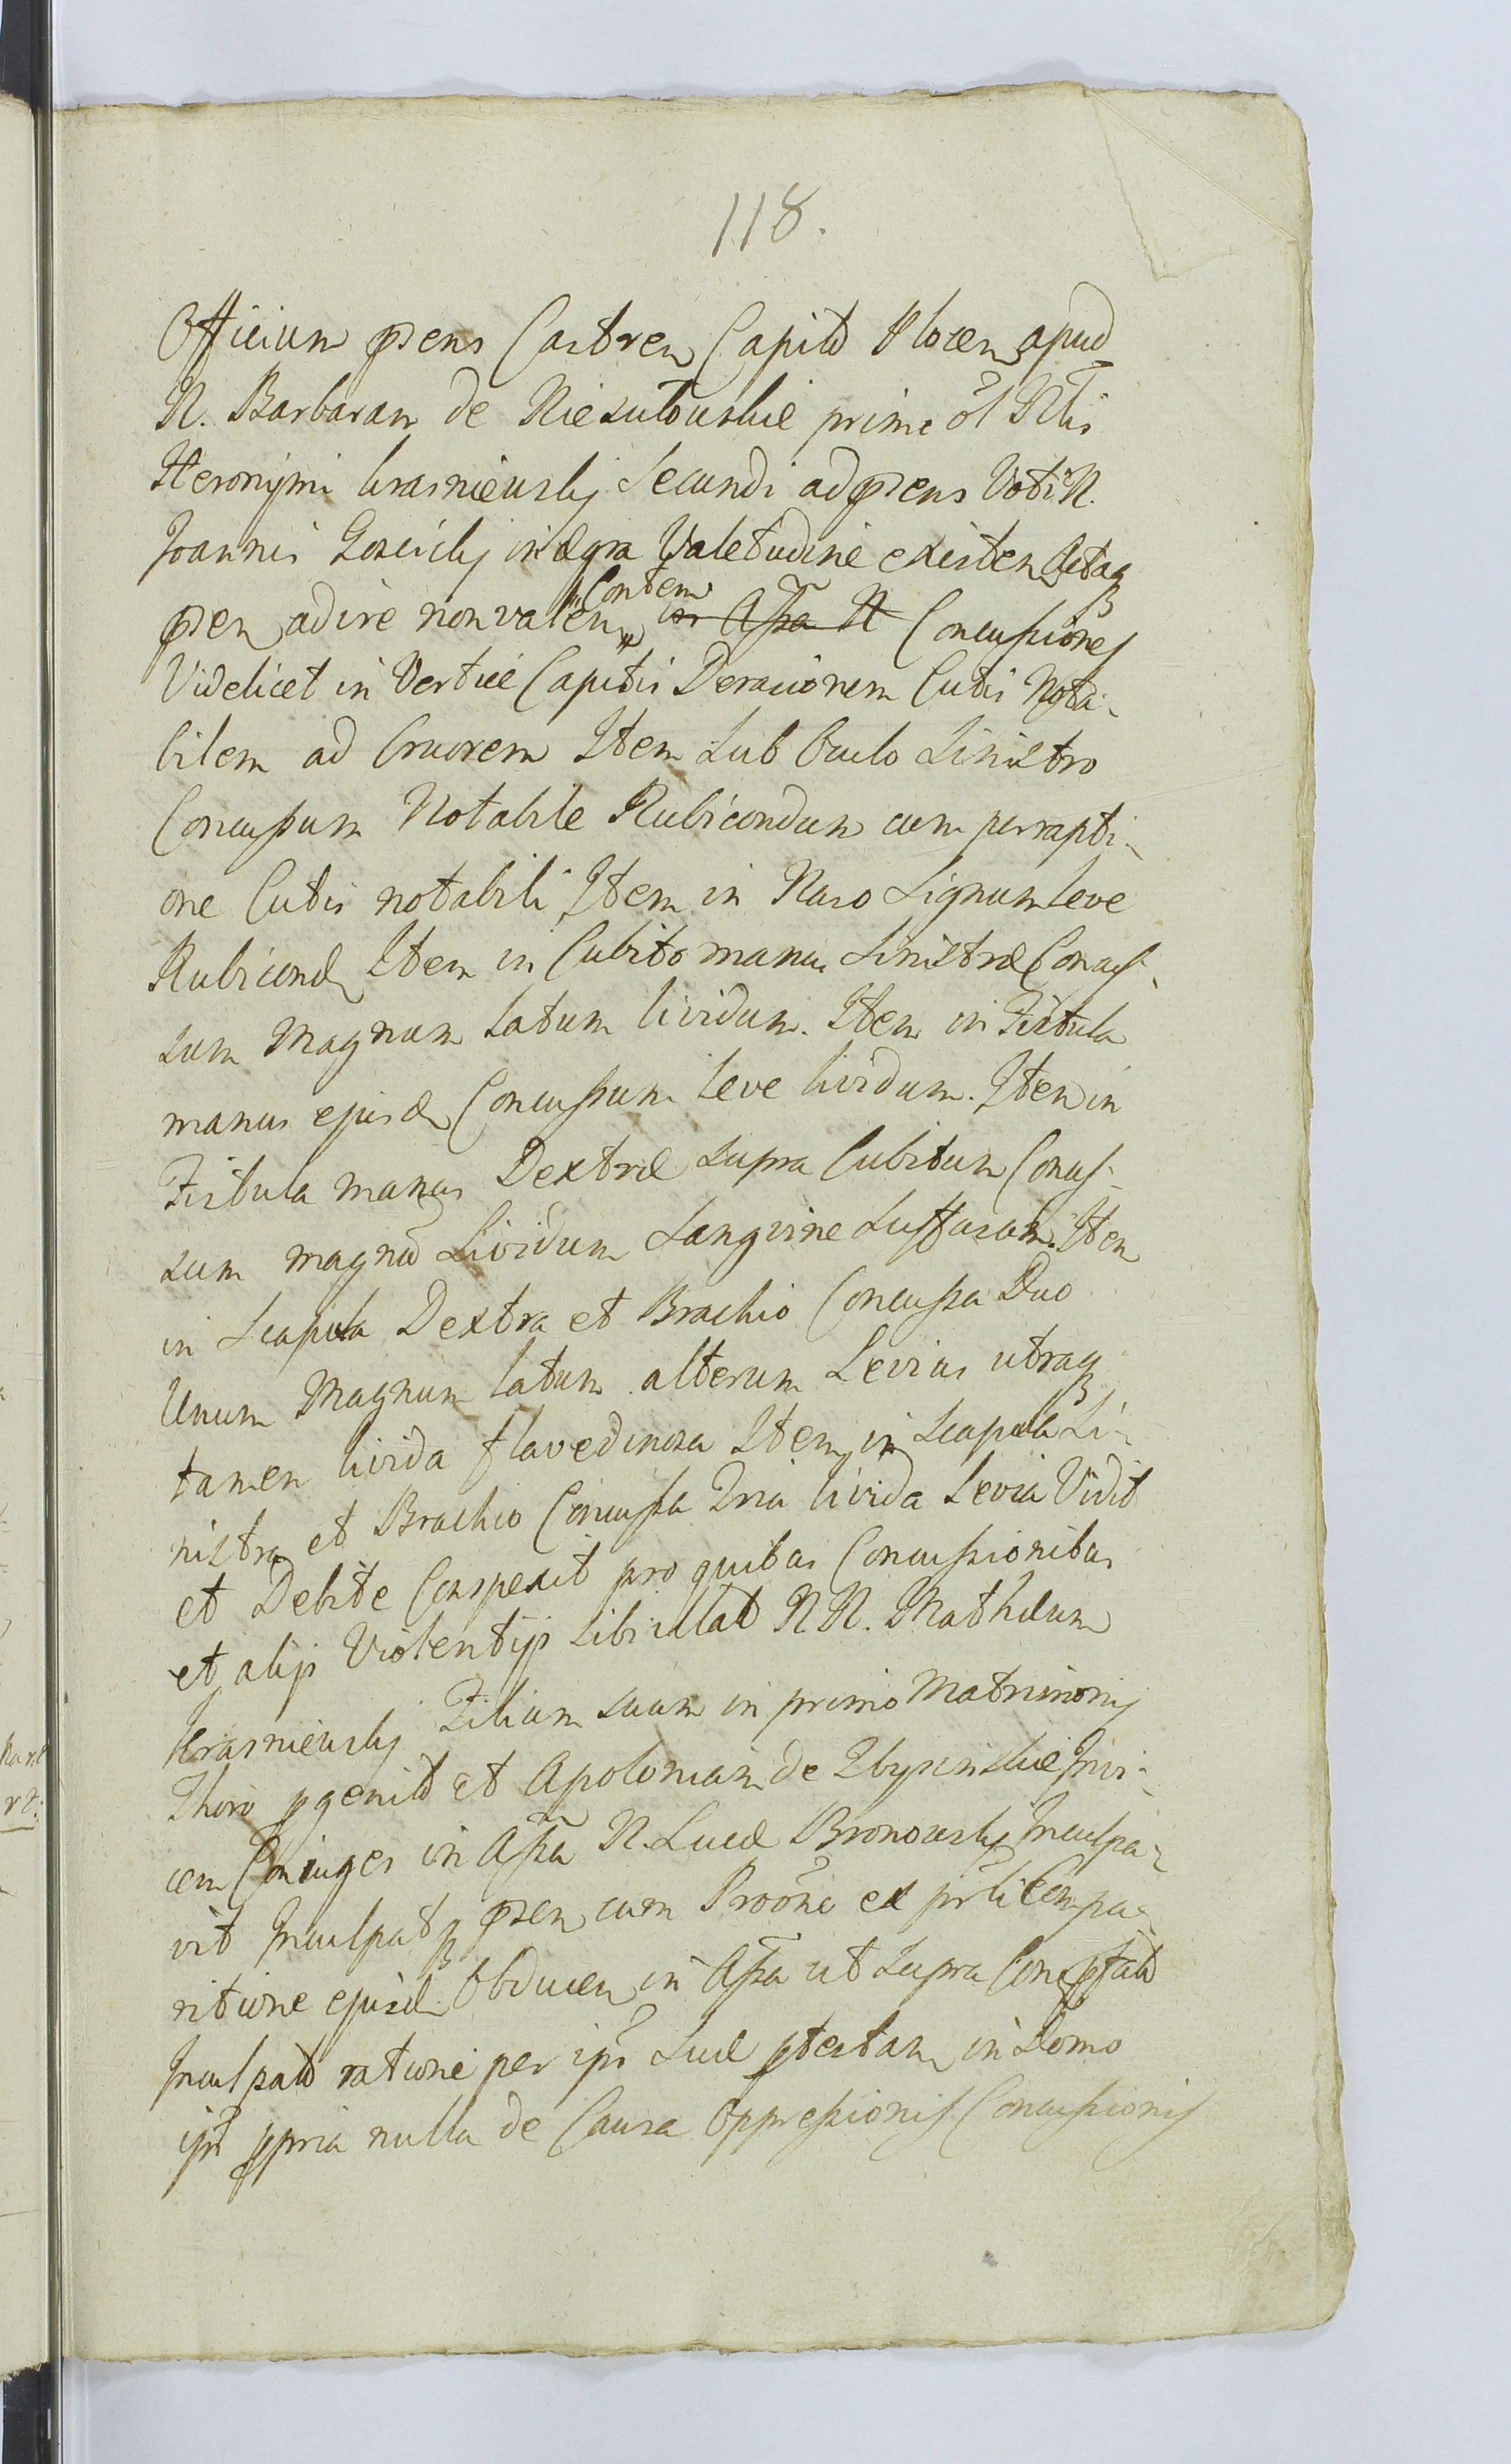 118.
Officium pñens Castren Capitl Plocen apud
N. Barbaram de Niesułowskie primo ol Nlis
Heronÿmi krasniewskj Secundi ad pñens Voti N.
Joannis Goscickj in ægra Valetudine existen Actaq
pñen adire non valen Contem Concussiones
Videlicet in Vertice Capitis Derasionem Cutis Nota-
bilem ad Cruorem Item Sub Oculo Sinistro
Concussum Notabile Rubicondum cum perrapti-
one Cutis notabili Item in Naso Signum leve
Rubicond Item in Cubito manus Sinistræ Concus-
sum Magnum Latum lividum. Item in Fistula
manus ejusd Concussum leve lividum. Item in
Fistula manus Dextræ supra Cubitum Concus-
sum magnū Lividum Sangvine Suffusum. Item
in Scapula Dextra et Brachio Concussa Duo
Unum Magnum latum alterum Levius utraq
tamen livida flavedinosa Item in Scapula Si-
nistra et Brachio Concussa Tria livida levia Vidit
et Debite Conspexit pro quibus Concussionibus
et alijs Violentijs sibi illat N N. Mathæum
Krasniewskj Filium suum in primo Matrimonij
Thoro pgenit et Apoloniam de Zbyszinskie Invi-
cem Coniuges in Assa N. Lucæ Bronowskj Inculpa-
vit Inculpatq pñen cum Proōne ex pr̃li Compa-
ritione ejusd Obducen in Assa ut Supra
Inculpato ratione per ips Suæ ptestam in Domo
ips ppria nulla de Causa Oppressionis Concussionis